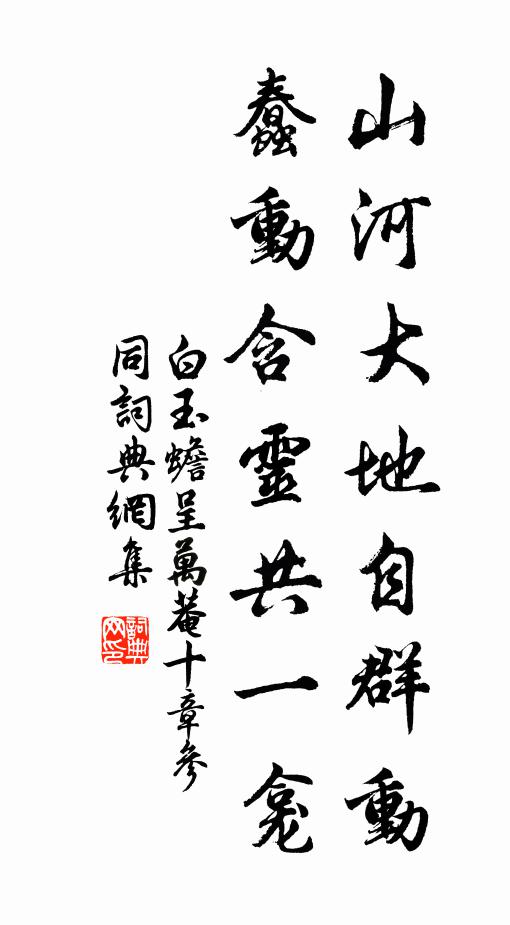 山河大地自群動
蠢動含靈共一龕
白玉蟾呈萬菴十章參
同詞典網集
詞典
网印